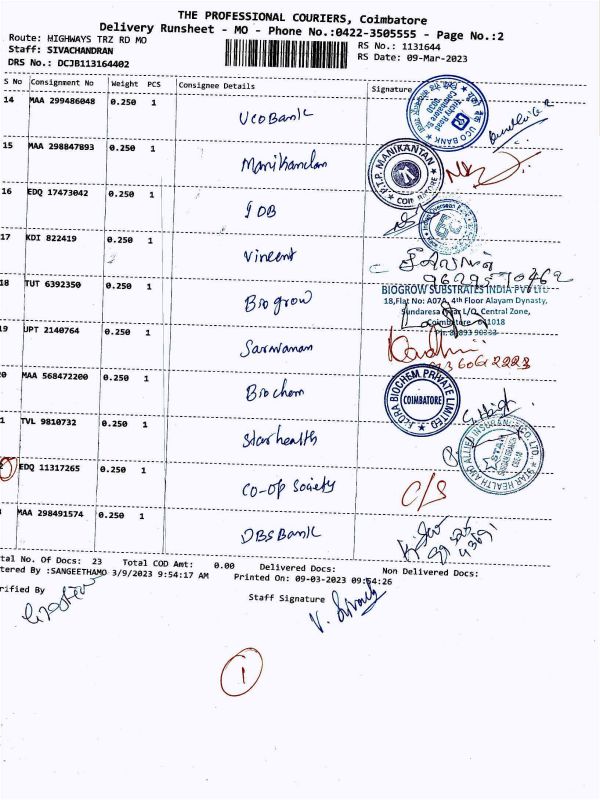 THE PROFESSIONAL COURIERS, Coimbatore
Delivery Runsheet - MO - Phone No.:0422-3505555 - Page No.:2
Route: HIGHWAYS TRZ RD MO
RS No.: 1131644
Staff: SIVACHANDRAN
RS Date: 09-Mar-2023
DRS No.: DCJB113164402
S No Consignment No Weight PCS Consignee Details Signature
14 MAA 299486048 0.250 1 UCO Bank
UCO BANK
15 MAA 298847893 0.250 1 Manikandan
T.P. MANIKANTAN
16 EDQ 17473042 0.250 1 IOB
17 KDI 822419 0.250 1 Vincent
18 TUT 6392350 0.250 1 Biogrow
BIOGROW SUBSTRATES INDIA PVT LTD
18,Flat No: A07A, 4th Floor Alayam Dynasty,
L/O, Central Zone,
Coimbatore - 641018
19 UPT 2140764 0.250 1 Sarvanan
20 MAA 568472200 0.250 1 Biochem
BIOCHEM PRIVATE LIMITED
COIMBATORE
1 TVL 9810732 0.250 1 Star health
STAR HEALTH AND ALLIED INSURANCE CO. LTD.
EDQ 11317265 0.250 1 CO-OP Society
C/S
MAA 298491574 0.250 1 DBS Bank
tal No. Of Docs: 23 Total COD Amt: 0.00 Delivered Docs: Non Delivered Docs:
tered By :SANGEETHAMO 3/9/2023 9:54:17 AM Printed On: 09-03-2023 09:54:26
rified By
Staff Signature
1